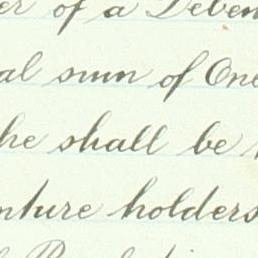 er of a Deben
al sum of One
he shall be
nture holders